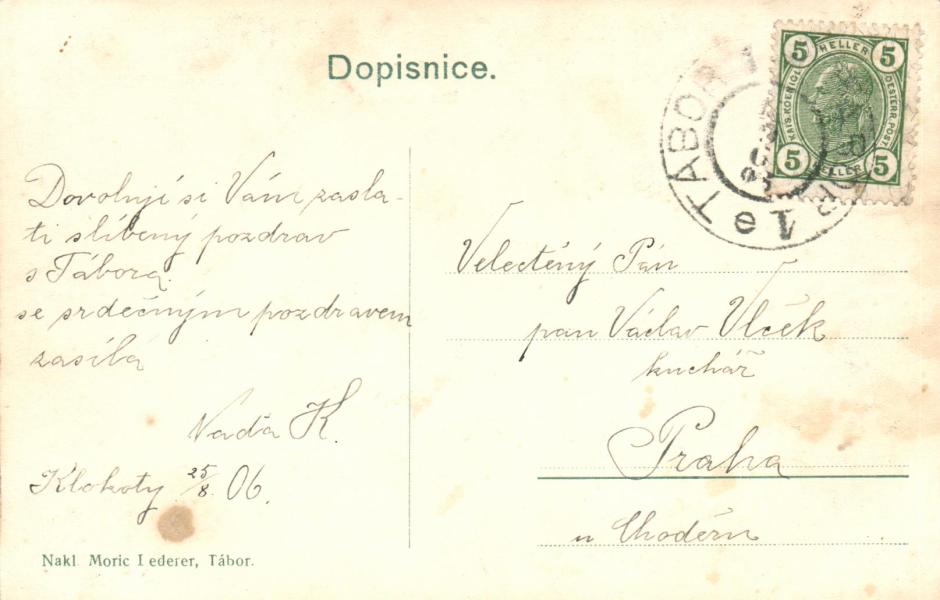 Dopisnice.
5 HELLER 5
KAIS. KOENIGL.
OESTERR. POST
5 HELLER 5
TÁBOR 1
1e
Dovoluji si Vám zasla-
ti slíbený pozdrav
s Tábora.
se srdečným pozdravem
zasílá
Naďa K.
Klokoty 25/8 06.
Velectěný Pán
pan Václav Vlček
kuchář
Praha
u
Nakl. Moric Lederer, Tábor.